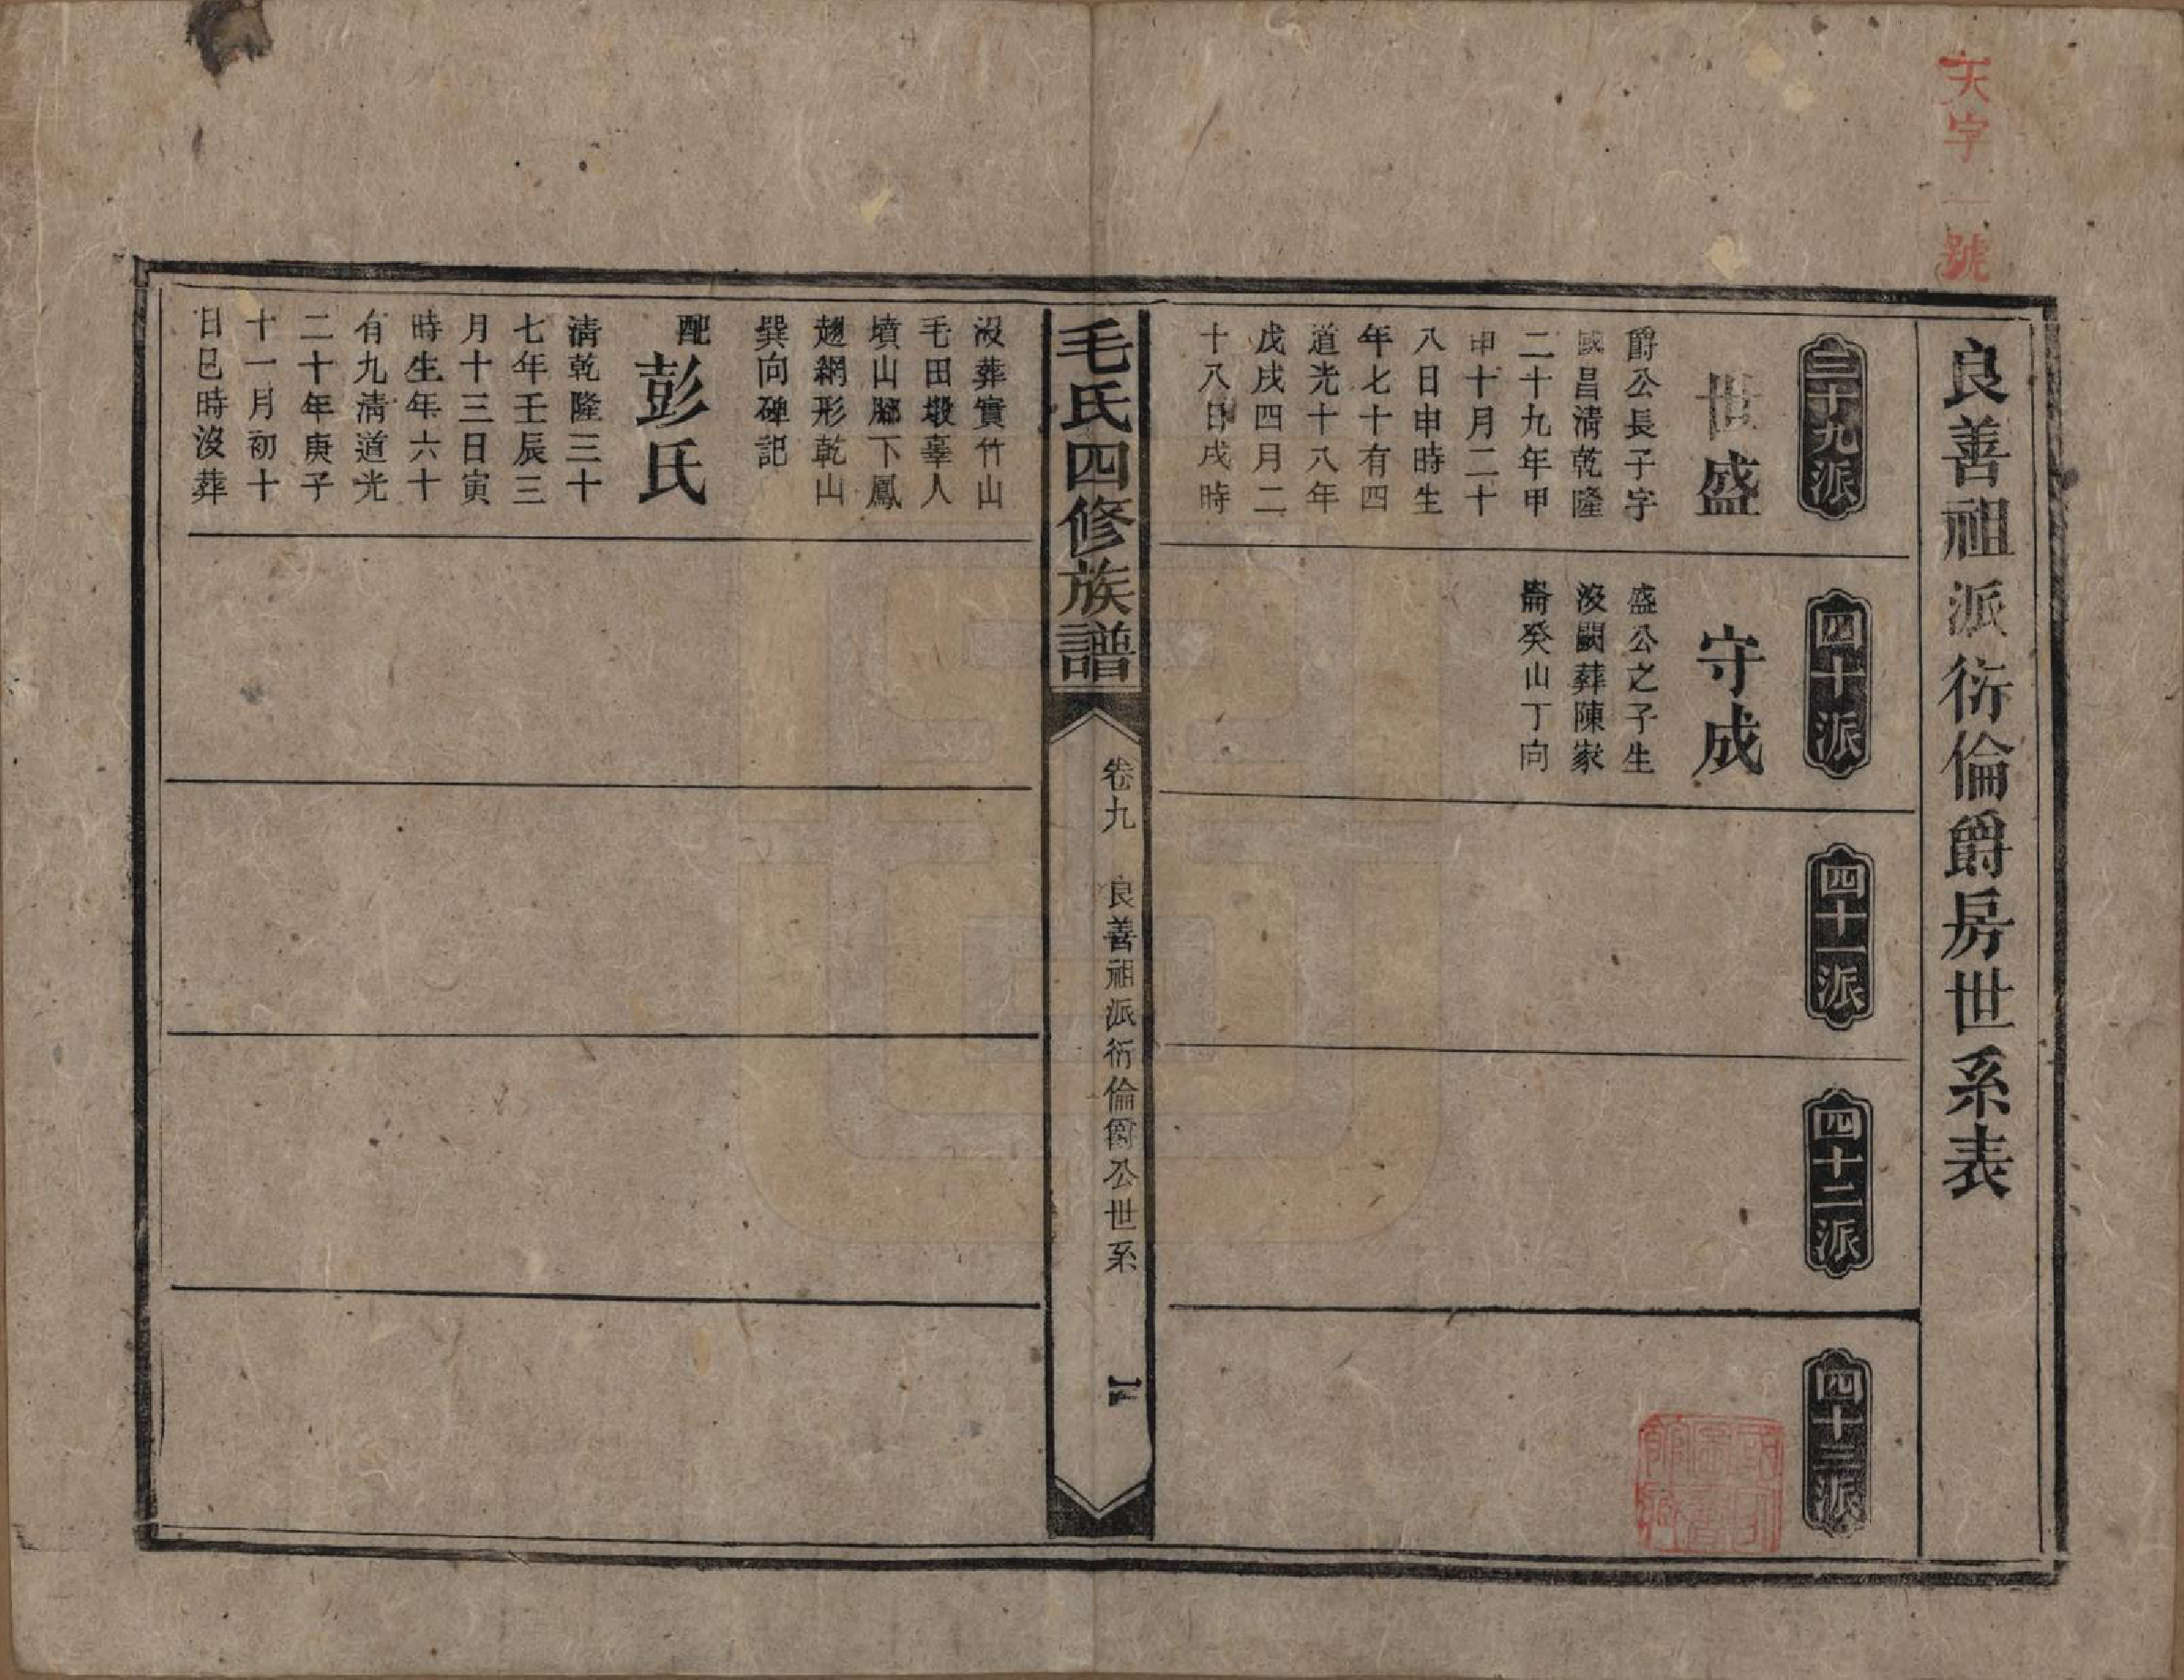 天字一號
良善祖派衍倫爵房世系表
三十九派
世盛
爵公長子字
國昌清乾隆
二十九年甲
申十月二十
八日申時生
年七十有四
道光十八年
戊戌四月二
十八日戌時
四十派
守成
盛公之子生
沒闕葬陳家
崙癸山丁向
四十一派
四十二派
四十三派
毛氏四修族譜
卷九 良善祖派衍倫爵公世系
沒葬實竹山
毛田墩辜人
墳山腳下鳳
趐網形乾山
巽向碑記
配彭氏
清乾隆三十
七年壬辰三
月十三日寅
時生年六十
有九清道光
二十年庚子
十一月初十
日巳時沒葬